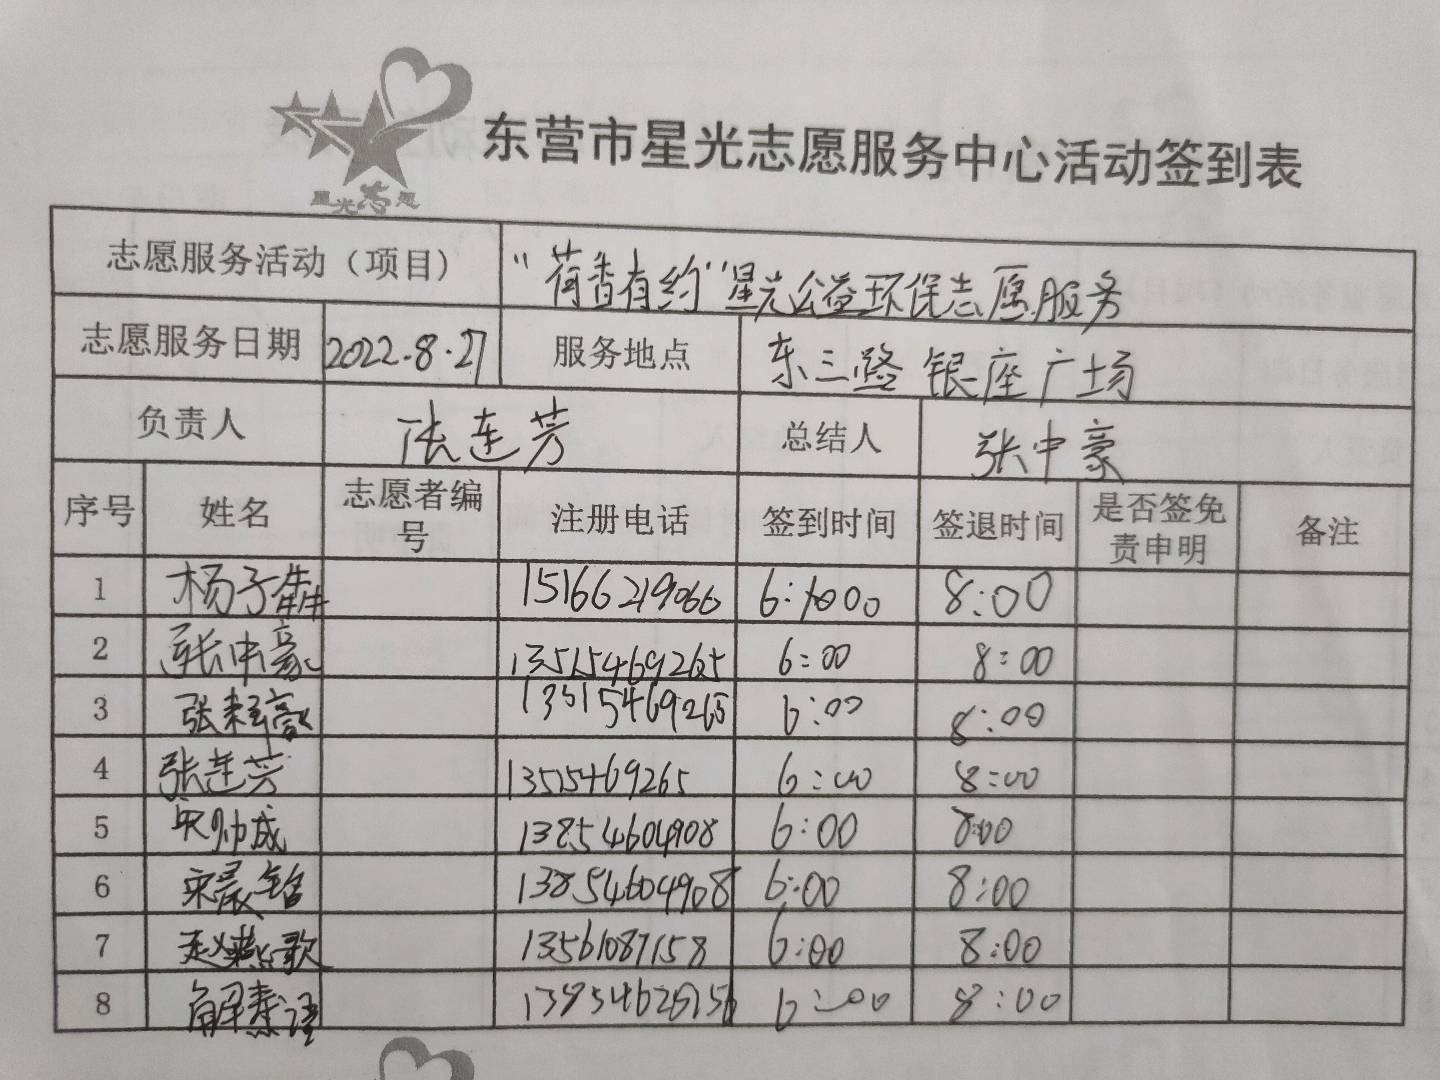 星光志愿
东营市星光志愿服务中心活动签到表
志愿服务活动（项目） “荷香有约”星光公益环保志愿服务
志愿服务日期 2022.8.27 服务地点 东三路银座广场
负责人 张连芳 总结人 张中豪
序号 姓名 志愿者编号 注册电话 签到时间 签退时间 是否签免责申明 备注
1 杨子犇 15166219066 6:00 8:00
2 张中豪 13515469265 6:00 8:00
3 张耘豪 13515469265 6:00 8:00
4 张连芳 13515469265 6:00 8:00
5 帅成 13854604908 6:00 8:00
6 宋晨铭 13854604908 6:00 8:00
7 赵燕歌 13561087158 6:00 8:00
8 解 6:00 8:00